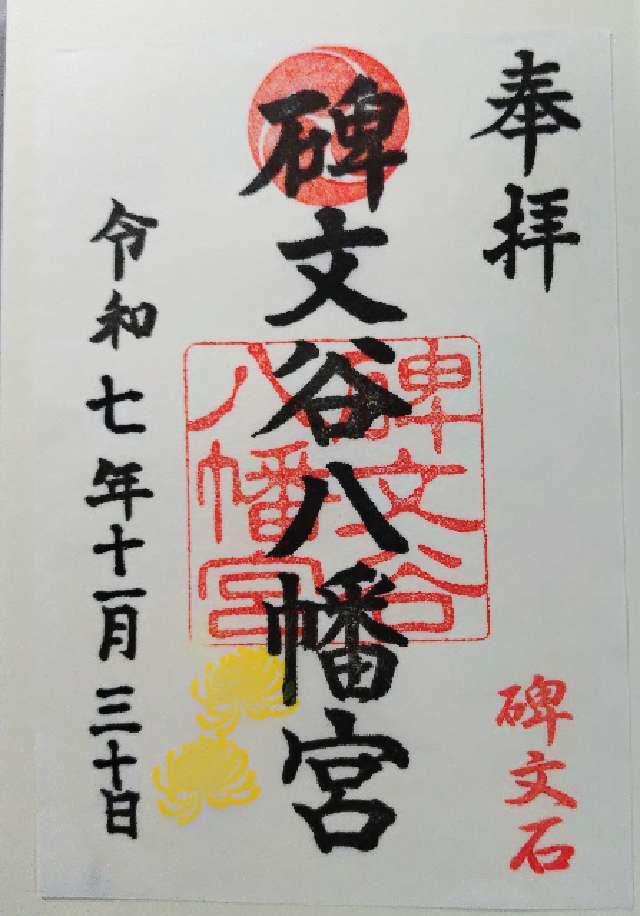 奉拝
碑文石
碑文谷八幡宮
碑文谷
八幡宮
令和七年十一月三十日